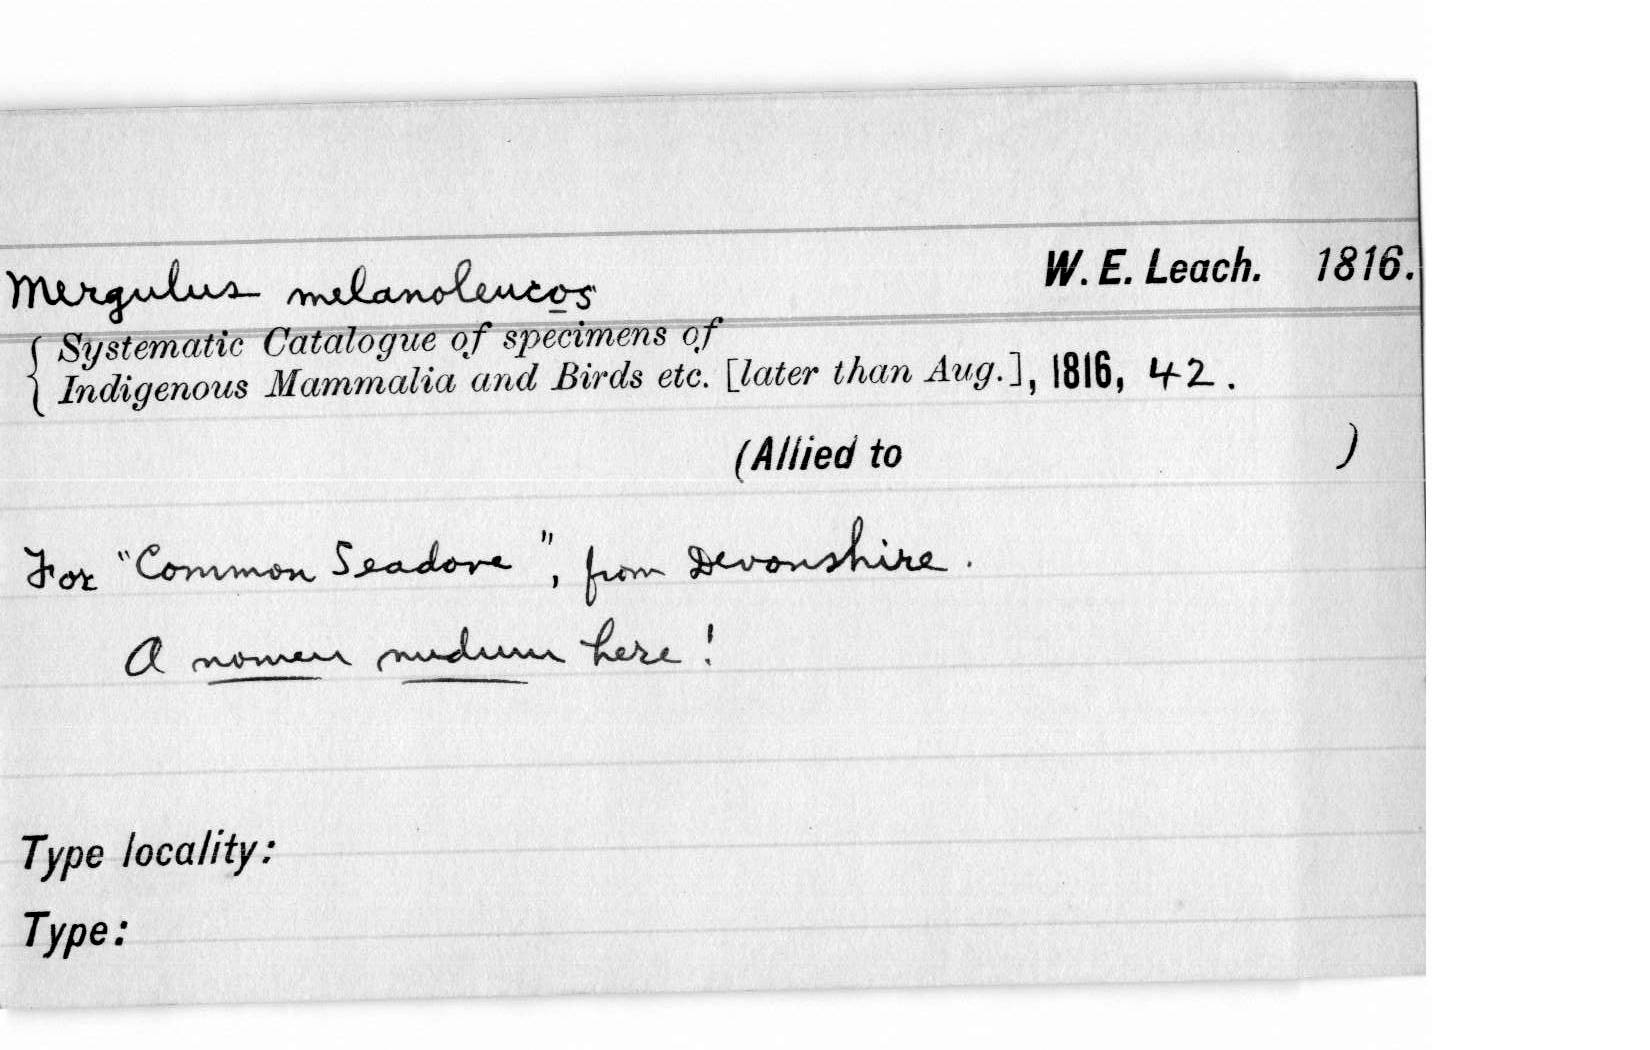 Mergulus melanoleucos W. E. Leach. 1816.
Systematic Catalogue of specimens of
Indigenous Mammalia and Birds etc. [later than Aug.], 1816, 42.
(Allied to )
For "Common Seadove", from Devonshire.
A nomen nudum here!
Type locality:
Type: